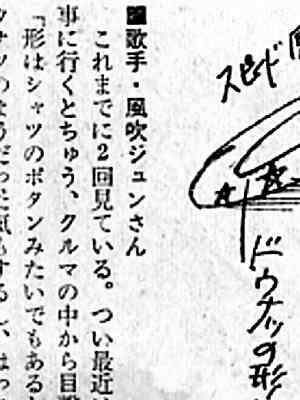 ■歌手・風吹ジュンさん
これまでに2回見ている。つい最近
事に行くとちゅう、クルマの中から目撃
「形はシャツのボタンみたいでもある
スピード
ドウナッツの形